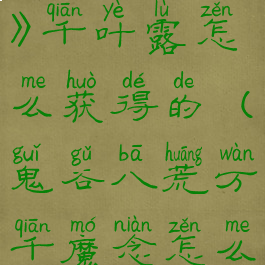 qiān yè lù zěn
》千叶露怎
me huò dé de
么获得的（
guǐ gǔ bā huāng wàn
鬼谷八荒万
qiān mó niàn zěn me
千魔念怎么